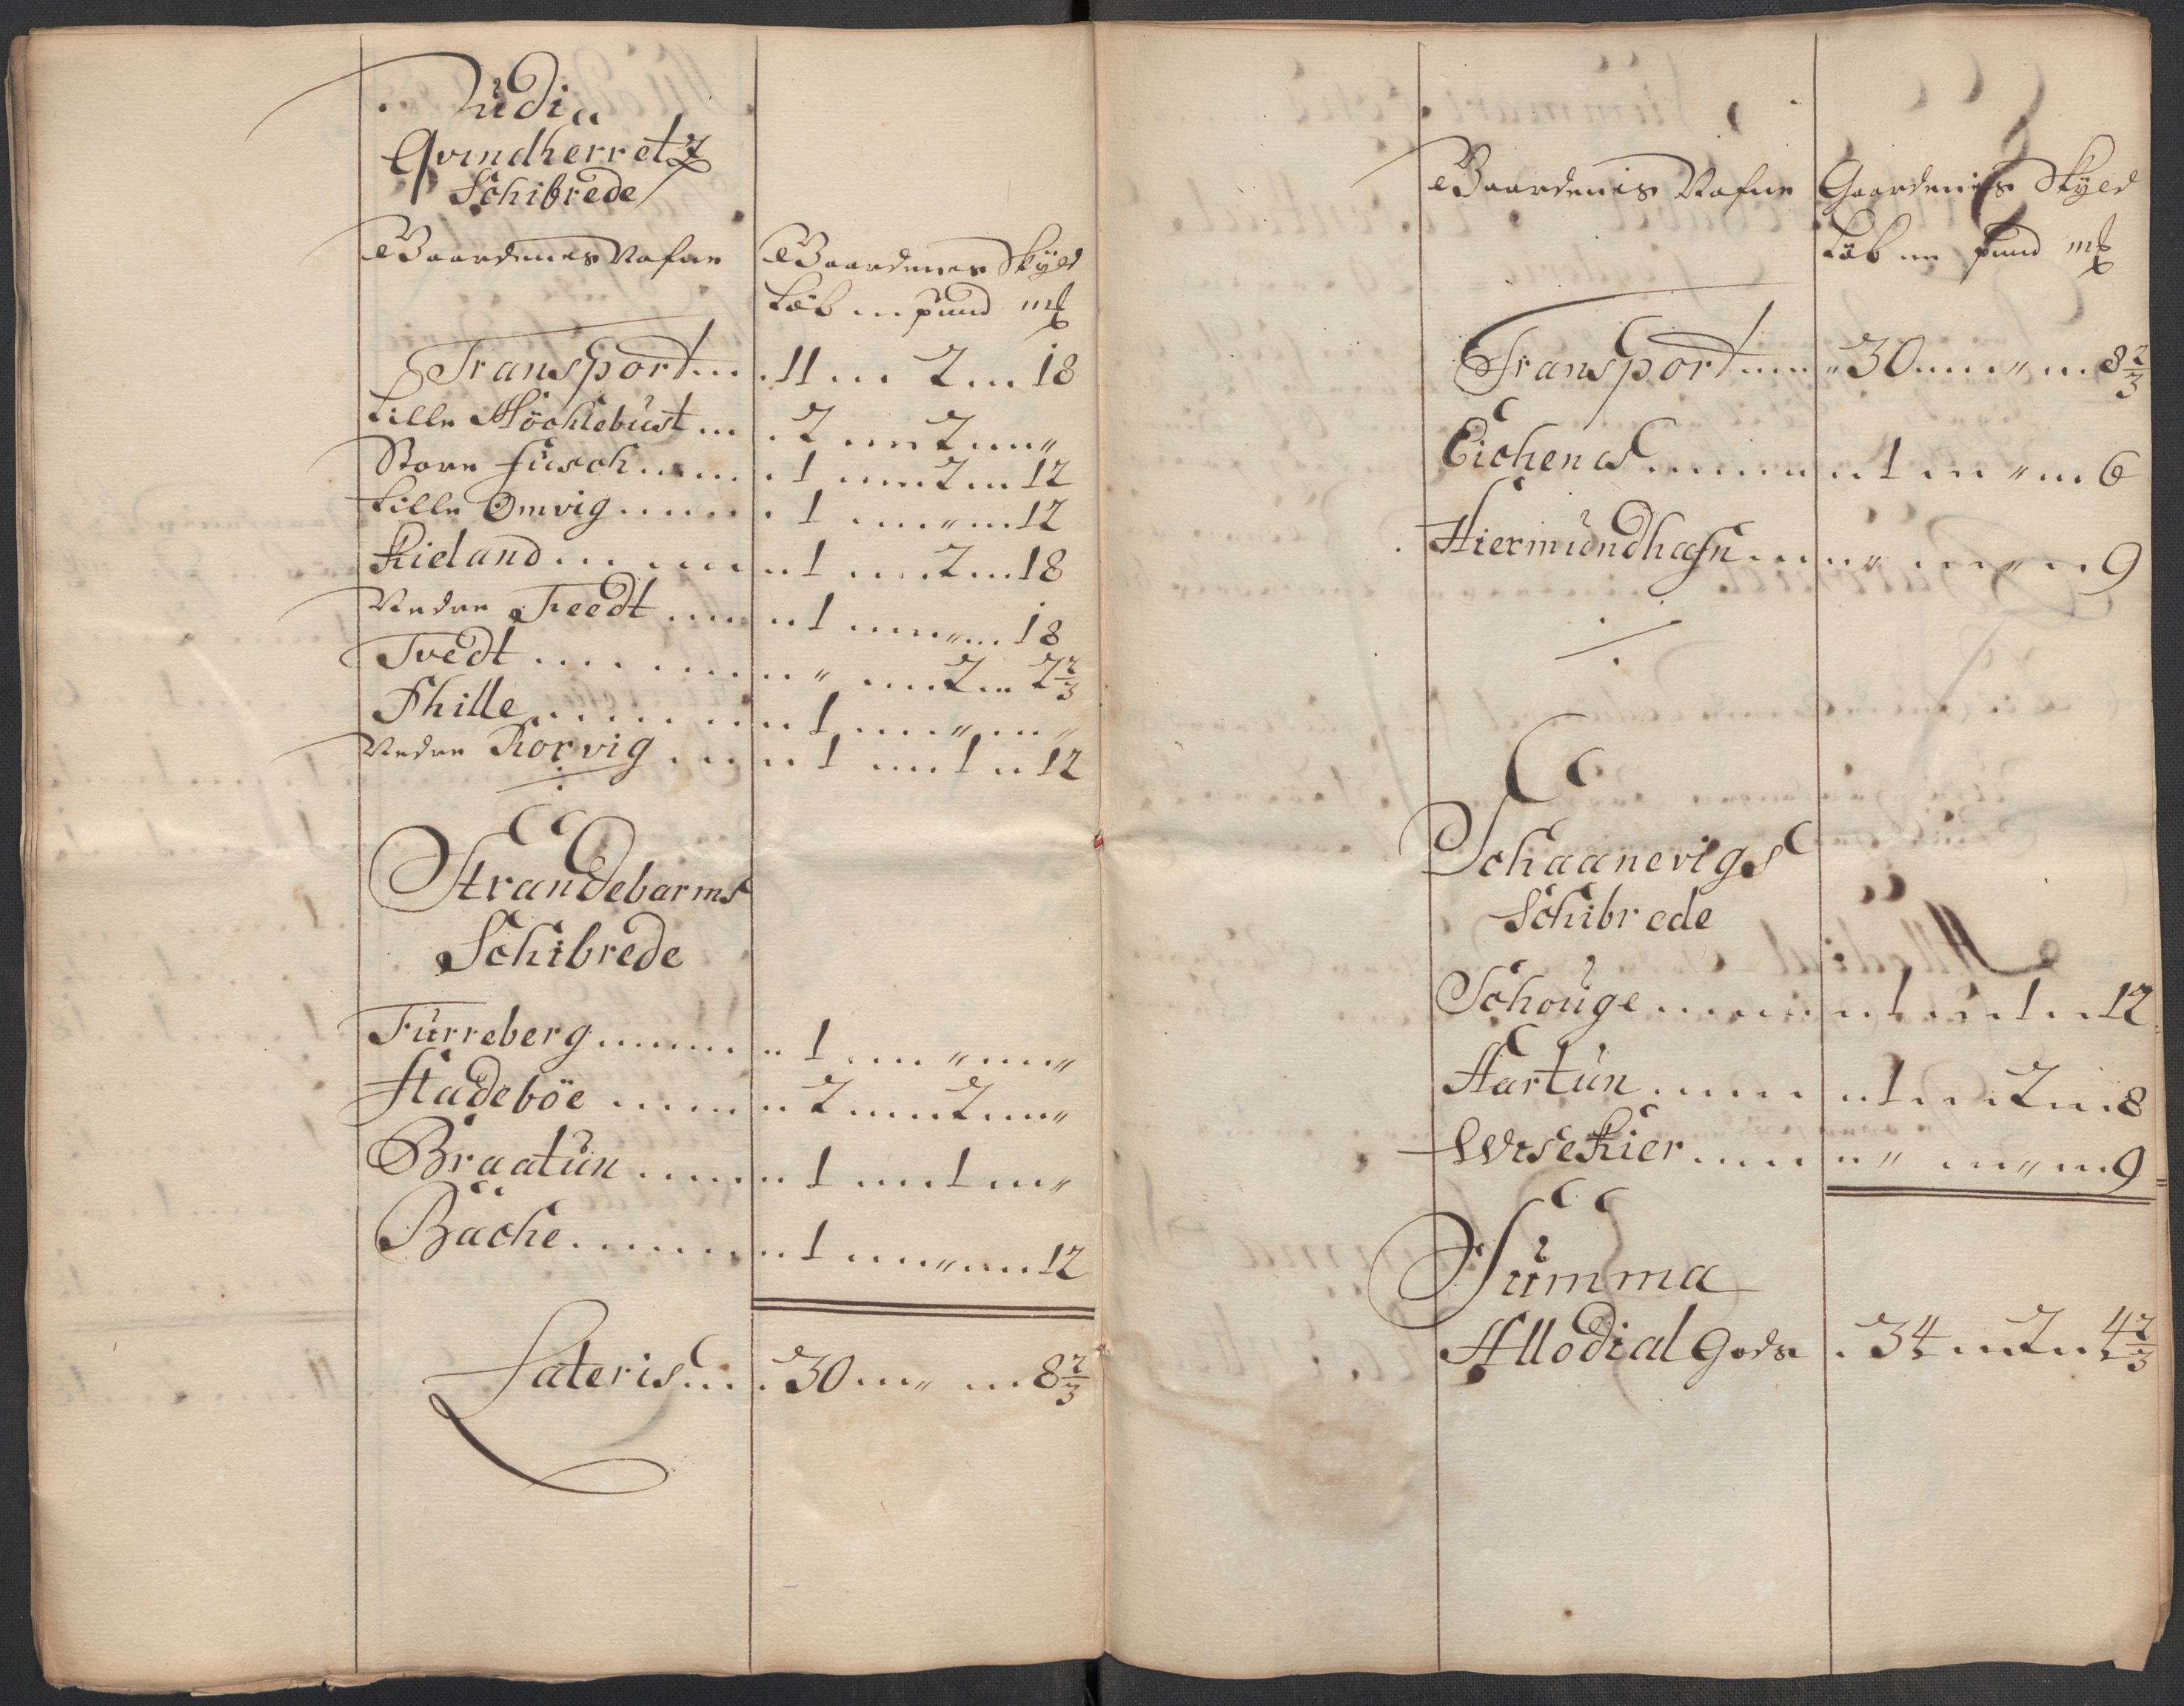 Udi
Qvindherretz
Schibrede
Gaardenes Nafne Gaardenes Skyld
Løb ... pund m℔
Transport ... 11 ... 2 ... 18
Lille Höchlebust ... 2 ... 2 ... "
Store Fusch ... 1 ... 2 ... 12
Lille Omvig ... 1 ... " ... 12
Kieland ... 1 ... 2 ... 18
Nedre Treedt ... 1 ... " ... 18
Tvedt ... " ... 2 ... 2 2/3
Fhille ... 1 ... " ... "
Nedre Rorvig ... 1 ... 1 ... 12
Strandebarms
Schibrede
Furreberg ... 1 ... " ... "
Hadeböe ... 2 ... 2 ... "
Braatun ... 1 ... 1 ... "
Bache ... 1 ... " ... 12
Lateris ... 30 ... " ... 8 2/3
Gaardenis Nafne Gaardenis Skyld
Løb ... pund m℔
Transport ... 30 ... " ... 8 2/3
Eichenes ... 1 ... " ... 6
Hiermundhafn ... " ... " ... 9
Schaanevigs
Schibrede
Schouge ... 1 ... 1 ... 12
Hartun ... 1 ... 2 ... 8
Wisekier ... " ... " ... 9
Summa
Allodial Gods . 34 ... 2 ... 4 2/3